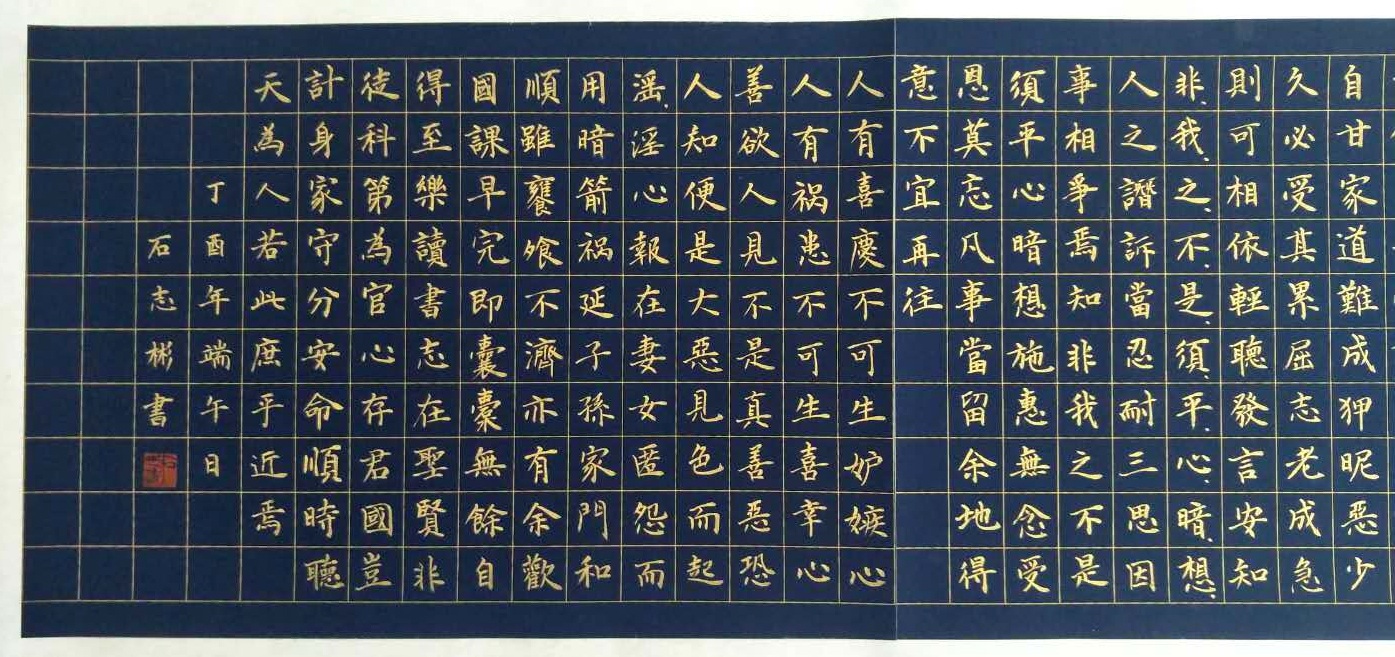 自甘家道難成狎昵惡少
久必受其累屈志老成急
則可相依輕聽發言安知
非我之不是須平心暗想
人之譖訴當忍耐三思因
事相爭焉知非我之不是
須平心暗想施惠無念受
恩莫忘凡事當留余地得
意不宜再往
人有喜慶不可生妒嫉心
人有禍患不可生喜幸心
善欲人見不是真善惡恐
人知便是大惡見色而起
滛淫心報在妻女匿怨而
用暗箭祸延子孫家門和
順雖饔飧不濟亦有余歡
國課早完即囊橐無餘自
得至樂讀書志在聖賢非
徒科第為官心存君國豈
計身家守分安命順時聽
天為人若此庶乎近焉
丁酉年端午日
石志彬書